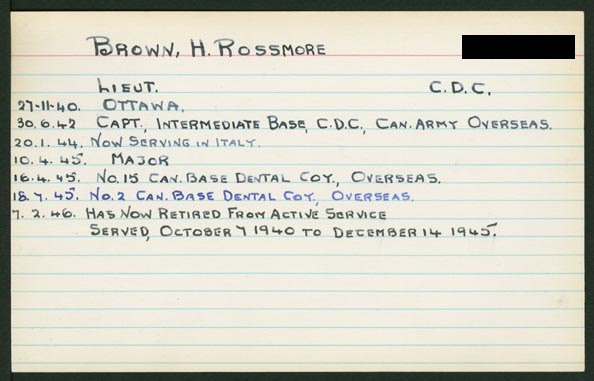 BROWN, H. ROSSMORE
LIEUT. C.D.C.
27-11-40. OTTAWA.
30.6.42 CAPT., INTERMEDIATE BASE, C.D.C., CAN. ARMY OVERSEAS.
20.1.44. NOW SERVING IN ITALY.
10.4.45. MAJOR
16.4.45. NO.15 CAN. BASE DENTAL COY., OVERSEAS.
18.7.45. NO.2 CAN. BASE DENTAL COY., OVERSEAS.
7.2.46. HAS NOW RETIRED FROM ACTIVE SERVICE
SERVED, OCTOBER 7 1940 TO DECEMBER 14 1945.